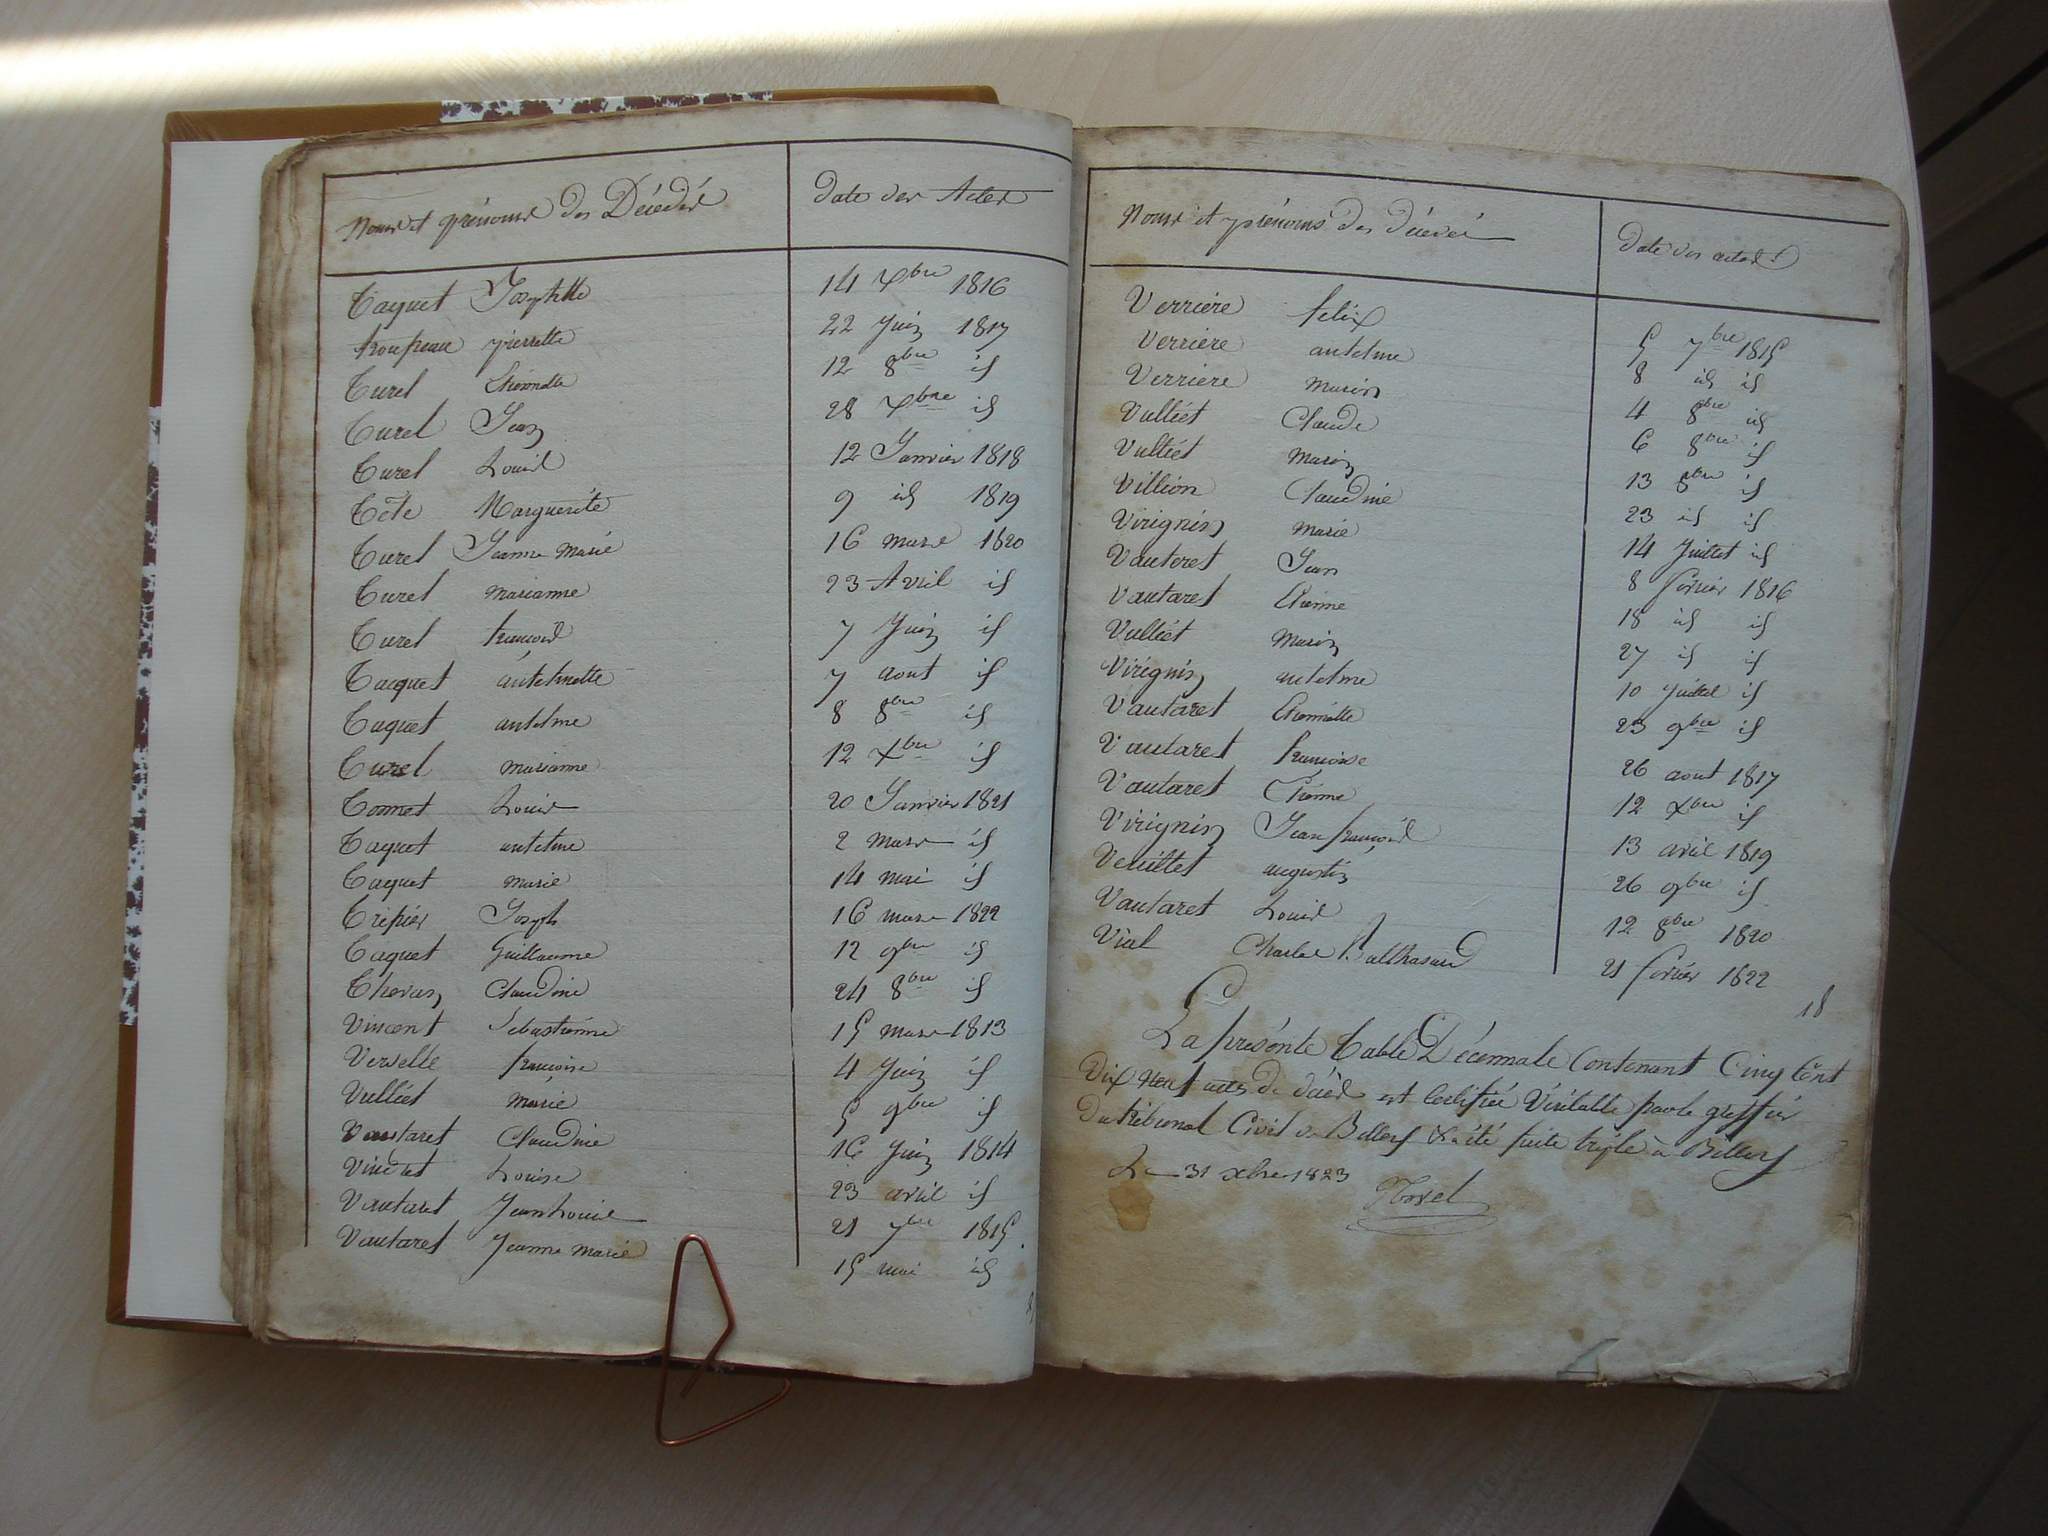 Noms et prénoms des Décédés Date des Actes
Taquet Josephtte 14 Xbre 1816
Troupeau pierrette 22 Juin 1817
Turel Etiennette 12 8bre id
Turel Jean 28 Xbre id
Turel Louis 12 Janvier 1818
Tête Marguerite 9 id 1819
Turel Jeanne Marie 16 mars 1820
Turel marianne 23 Avril id
Turel françois 7 Juin id
Tacquet antelmette 7 aout id
Taquet antelme 8 8bre id
Turel marianne 12 Xbre id
Tonnet Louis 20 Janvier 1821
Taquet antelme 2 mars id
Taquet marie 14 mai id
Trépier Joseph 16 mars 1822
Taquet Guillaume 12 9bre id
Thevan Claudine 24 8bre id
Vincent Sébastienne 15 mars 1813
Verselle françoise 4 Juin id
Vulliet marie 5 9bre id
Vautaret Claudine 16 Juin 1814
Louise 23 avril id
Vautaret Jean Louis 21 7bre 1815.
Vautaret Jeanne Marie 15 mai id
Noms et prénoms des décédés Date des actes
Verriere felix 5 7bre 1815
Verriere antelme 8 id id
Verriere marin 4 8bre id
Vulliét Claude 6 8bre id
Vulliét marin 13 8bre id
Villion Claudine 23 id id
Virignin marie 14 Juillet id
Vauteret Jean 8 février 1816
Vautaret Etienne 18 id id
Vulliét marin 27 id id
Virignin antelme 10 Juillet id
Vautaret Etiennette 23 9bre id
Vautaret françoise 26 aout 1817
Vautaret Etienne 12 Xbre id
Virignin Jean françois 13 avril 1819
Veuillet augustin 26 9bre id
Vautaret Louis 12 8bre 1820
Vial Charles Balthasard 21 février 1822
18
La présente Table Décennale Contenant Cinq Cent
Dix Neuf actes de décès est Certifiée Véritable par le greffier
Du tribunal Civil de Belley & a été faite triple à Belley
Le 31 xbre 1823